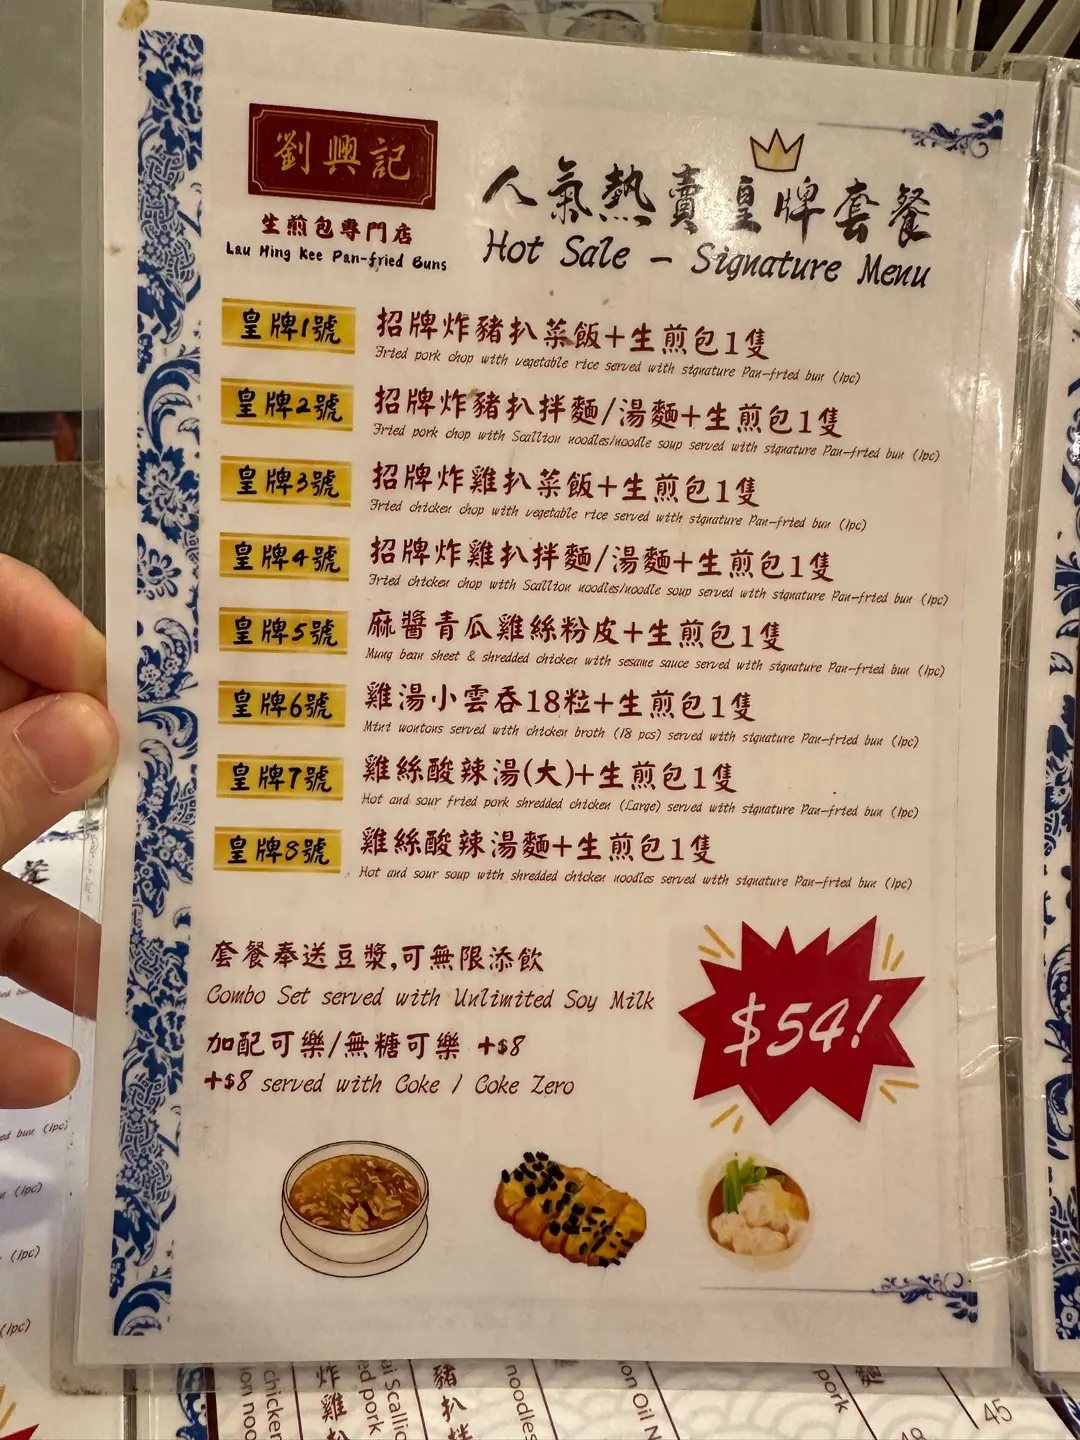 劉興記
生煎包專門店
Lau Hing Kee Pan-fried Buns
人氣熱賣皇牌套餐
Hot Sale - Signature Menu
皇牌1號 招牌炸豬扒菜飯+生煎包1隻
Fried pork chop with vegetable rice served with signature Pan-fried bun (1pc)
皇牌2號 招牌炸豬扒拌麵/湯麵+生煎包1隻
Fried pork chop with Scallion noodles/noodle soup served with signature Pan-fried bun (1pc)
皇牌3號 招牌炸雞扒菜飯+生煎包1隻
Fried chicken chop with vegetable rice served with signature Pan-fried bun (1pc)
皇牌4號 招牌炸雞扒拌麵/湯麵+生煎包1隻
Fried chicken chop with Scallion noodles/noodle soup served with signature Pan-fried bun (1pc)
皇牌5號 麻醬青瓜雞絲粉皮+生煎包1隻
Mung bean sheet & shredded chicken with sesame sauce served with signature Pan-fried bun (1pc)
皇牌6號 雞湯小雲吞18粒+生煎包1隻
Mini wontons served with chicken broth (18 pcs) served with signature Pan-fried bun (1pc)
皇牌7號 雞絲酸辣湯(大)+生煎包1隻
Hot and sour fried pork shredded chicken (Large) served with signature Pan-fried bun (1pc)
皇牌8號 雞絲酸辣湯麵+生煎包1隻
Hot and sour soup with shredded chicken noodles served with signature Pan-fried bun (1pc)
套餐奉送豆漿,可無限添飲
Combo Set served with Unlimited Soy Milk
加配可樂/無糖可樂 +$8
+$8 served with Coke / Coke Zero
$54!
餐
ed bun (1pc)
(1pc)
(1pc)
(1pc)
chicken
on noo
炸雞扒
ai Scallio
ed pork
豬扒拌
noodles
on Oil N
pork
麵
45